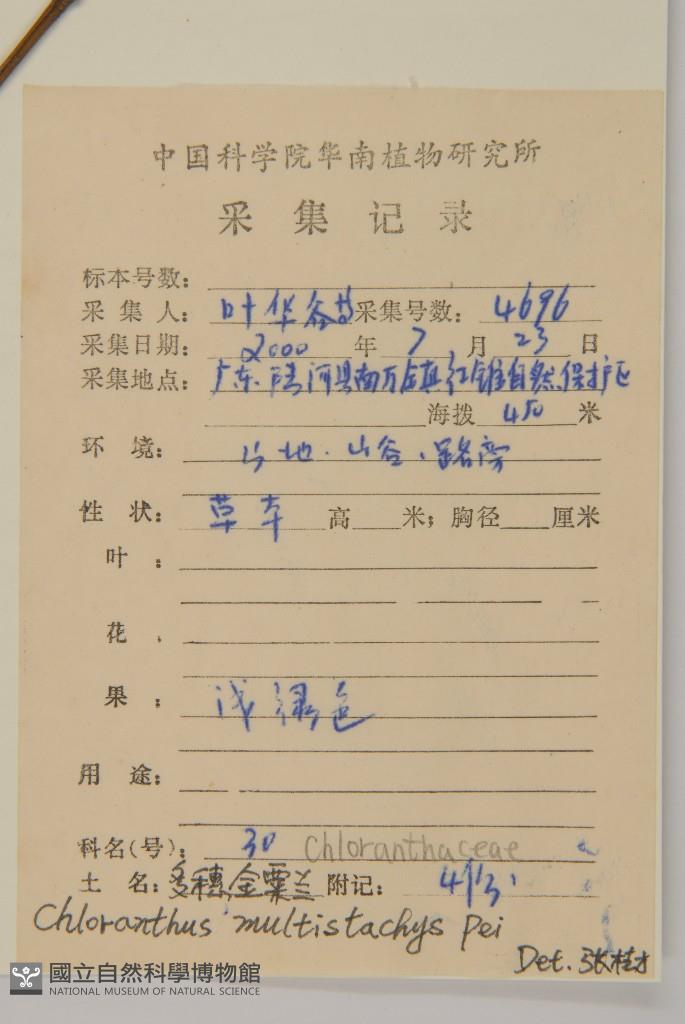 中国科学院华南植物研究所
采集记录
标本号数：
采集人：叶华谷等 采集号数：4696
采集日期：2000年7月23日
采集地点：广东陆河县南万镇红锥自然保护区
海拨 450 米
环境：山地．山谷、路旁
性状：草本 高 米；胸径 厘米
叶：
花．
果：浅绿色
用途：
科名(号)：30 Chloranthaceae
土名：多穗金粟兰 附记：
Chloranthus multistachys Pei
Det. 张桂才
國立自然科學博物館
NATIONAL MUSEUM OF NATURAL SCIENCE